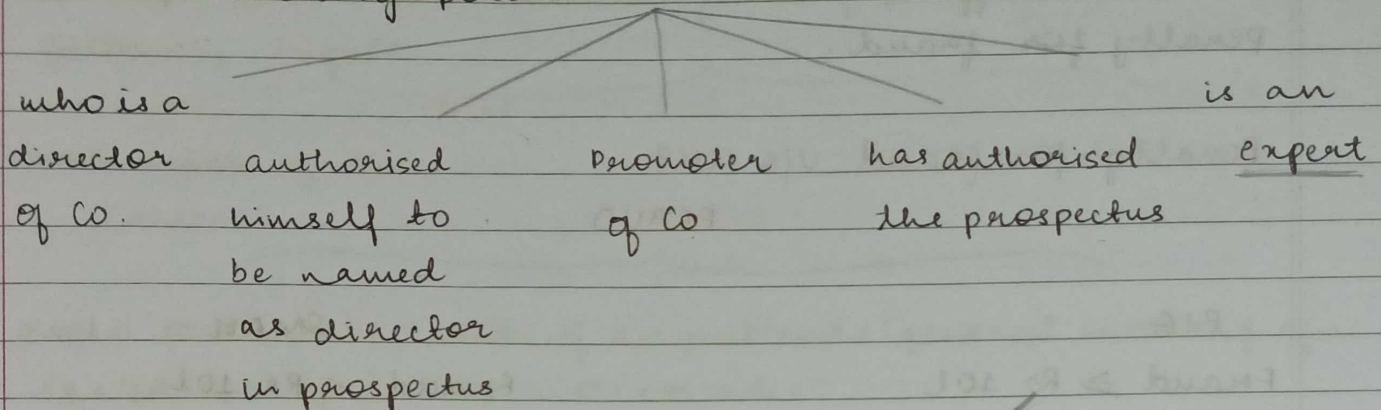 who is a
director
of Co.
authorised
himself to
be named
as director
in prospectus
Promoter
of Co
has authorised
the prospectus
is an
expert